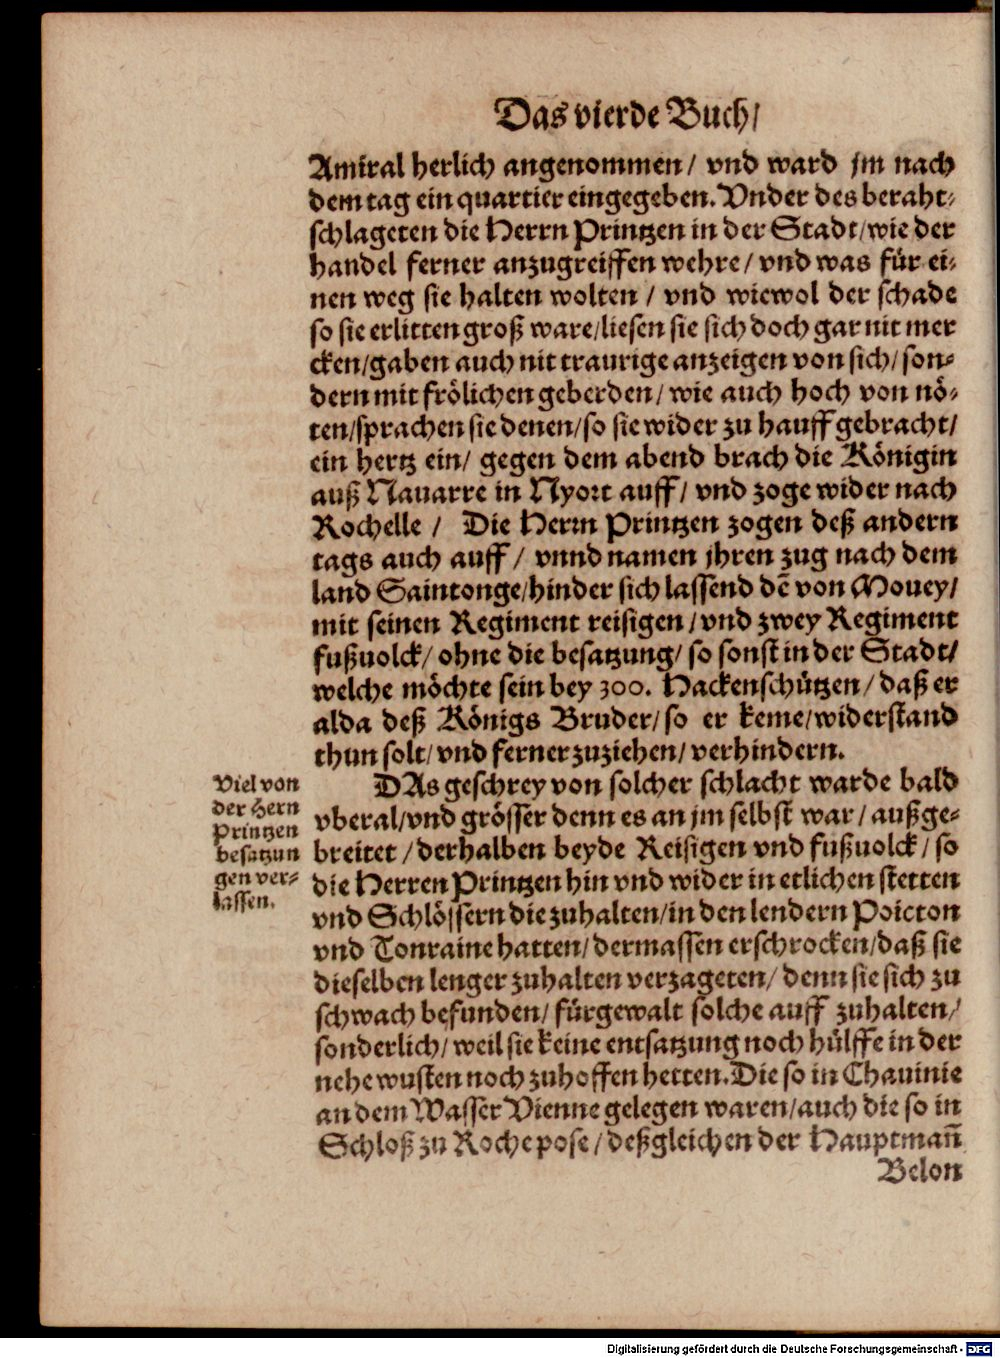 Das vierde Buch/
Amiral herlich angenommen/ vnd ward jm nach
dem tag ein quartier eingegeben. Vnder des beraht-
schlageten die Herrn Printzen in der Stadt/wie der
handel ferner anzugreiffen wehre/ vnd was für ei-
nen weg sie halten wolten / vnd wiewol der schade
so sie erlitten groß ware/liesen sie sich doch gar nit mer
cken/gaben auch nit traurige anzeigen von sich/ son-
dern mit frölichen geberden/ wie auch hoch von nö-
ten/sprachen sie denen/so sie wider zu hauff gebracht/
ein hertz ein/ gegen dem abend brach die Königin
auß Nauarre in Nyort auff/ vnd zoge wider nach
Rochelle / Die Herrn Printzen zogen deß andern
tags auch auff / vnnd namen jhren zug nach dem
land Saintonge/hinder sich lassend dē von Mouey/
mit seinen Regiment reisigen/vnd zwey Regiment
fußuolck/ ohne die besatzung/ so sonst in der Stadt/
welche möchte sein bey 300. Hackenschützen/ daß er
alda deß Königs Bruder/so er keme/widerstand
thun solt/vnd ferner zuziehen/ verhindern.
DAs geschrey von solcher schlacht warde bald
vberal/vnd grösser denn es an jm selbst war/ außge-
breitet /derhalben beyde Reisigen vnd fußuolck/ so
die Herren Printzen hin vnd wider in etlichen stetten
vnd Schlössern die zuhalten/in den lendern Poicton
vnd Tonraine hatten/ dermassen erschrocken/daß sie
dieselben lenger zuhalten verzageten/ denn sie sich zu
schwach befunden/ fürgewalt solche auff zuhalten/
sonderlich/ weil sie keine entsatzung noch hülffe in der
nehe wusten noch zuhoffen hetten. Die so in Chauinie
an dem Wasser Vienne gelegen waren/auch die so in
Schloß zu Roche pose/ deßgleichen der Hauptmañ
Belon
Viel von
der Hern
Printzen
besatzun
gen ver-
lassen.
Digitalisierung gefördert durch die Deutsche Forschungsgemeinschaft - DFG